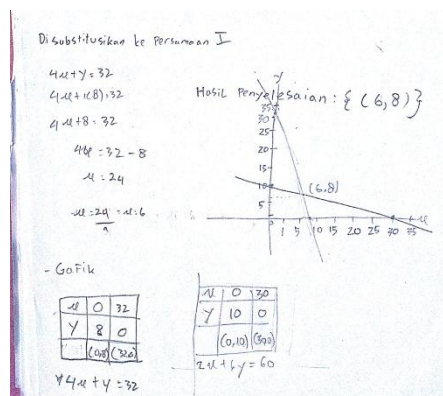 Disubstitusikan ke Persamaan I
4x+y=32
4x+1(8)=32
4x+8=32
4x=32-8
x=24
x=24/4=x=6
Hasil Penyelesaian: {(6,8)}
y
35
30
25
20
15
10
5
(6,8)
1 5 10 15 20 25 30 35 x
- Gafik
x 0 32
y 8 0
(0,8) (32,0)
4x+y=32
x 0 30
y 10 0
(0,10) (30,0)
2x+6y=60